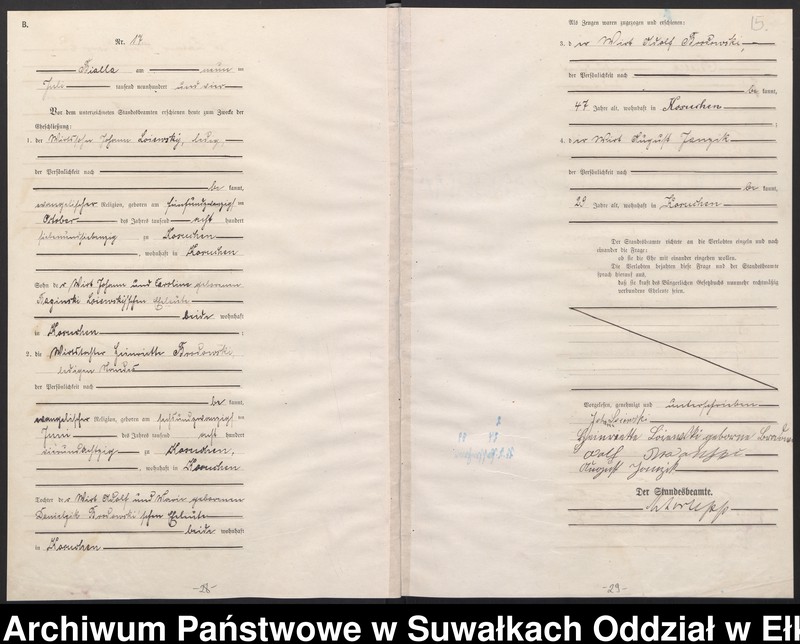 B.
Nr. 17
Bialla am neun ten
Juli tausend neunhundert und vier
Vor dem unterzeichneten Standesbeamten erschienen heute zum Zwecke der
Eheschließung:
1. der Wirtssohn Johann Loiewsky, ledig,
der Persönlichkeit nach
be kannt,
evangelischer Religion, geboren am fünfundzwanzigsten
Oktober des Jahres tausend acht hundert
siebenundsiebenzig zu
, wohnhaft in
Sohn der Wirt Johann und Caroline geborenen
Loiewskischen Eheleute
beide wohnhaft
in
2. die Wirtstochter Heinriette Brodowski,
ledigen Standes
der Persönlichkeit nach
be kannt,
evangelischer Religion, geboren am sechsundzwanzigsten
Juni des Jahres tausend acht hundert
vierundachtzig zu
, wohnhaft in
Tochter der Wirt Adolf und Marie geborenen
Brodowski'schen Eheleute
beide wohnhaft
in
-28-
15.
Als Zeugen waren zugezogen und erschienen:
3. der Wirt Adolf Brodowski,
der Persönlichkeit nach
be kannt,
47 Jahre alt, wohnhaft in
;
4. der Wirt August
der Persönlichkeit nach
be kannt,
29 Jahre alt, wohnhaft in
Der Standesbeamte richtete an die Verlobten einzeln und nach
einander die Frage:
ob sie die Ehe mit einander eingehen wollen.
Die Verlobten bejahten diese Frage und der Standesbeamte
sprach hierauf aus,
daß sie kraft des Bürgerlichen Gesetzbuchs nunmehr rechtmäßig
verbundene Eheleute seien.
Vorgelesen, genehmigt und unterschrieben
Loiewski
Heinriette Loiewski geborene
Adolf
August
Der Standesbeamte.
-29-
Archiwum Państwowe w Suwałkach Oddział w Eł